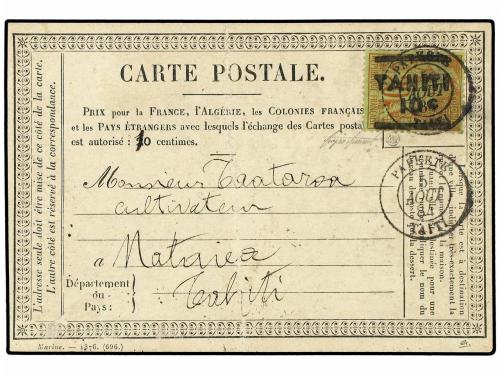 CARTE POSTALE.
PRIX pour la FRANCE, l'ALGÉRIE, les COLONIES FRANÇAISES
et les PAYS ÉTRANGERS avec lesquels l'échange des Cartes postales
est autorisé : 10 centimes.
Monsieur Taataroa
cultivateur
à Mataiea
Département
ou
Pays :
Tahiti
L'adresse seule doit être mise de ce côté de la carte.
L'autre côté est réservé à la correspondance.
TAHITI
10 c
PAPEETE
AOUT
TAITI
Marine. — 1376. (696.)